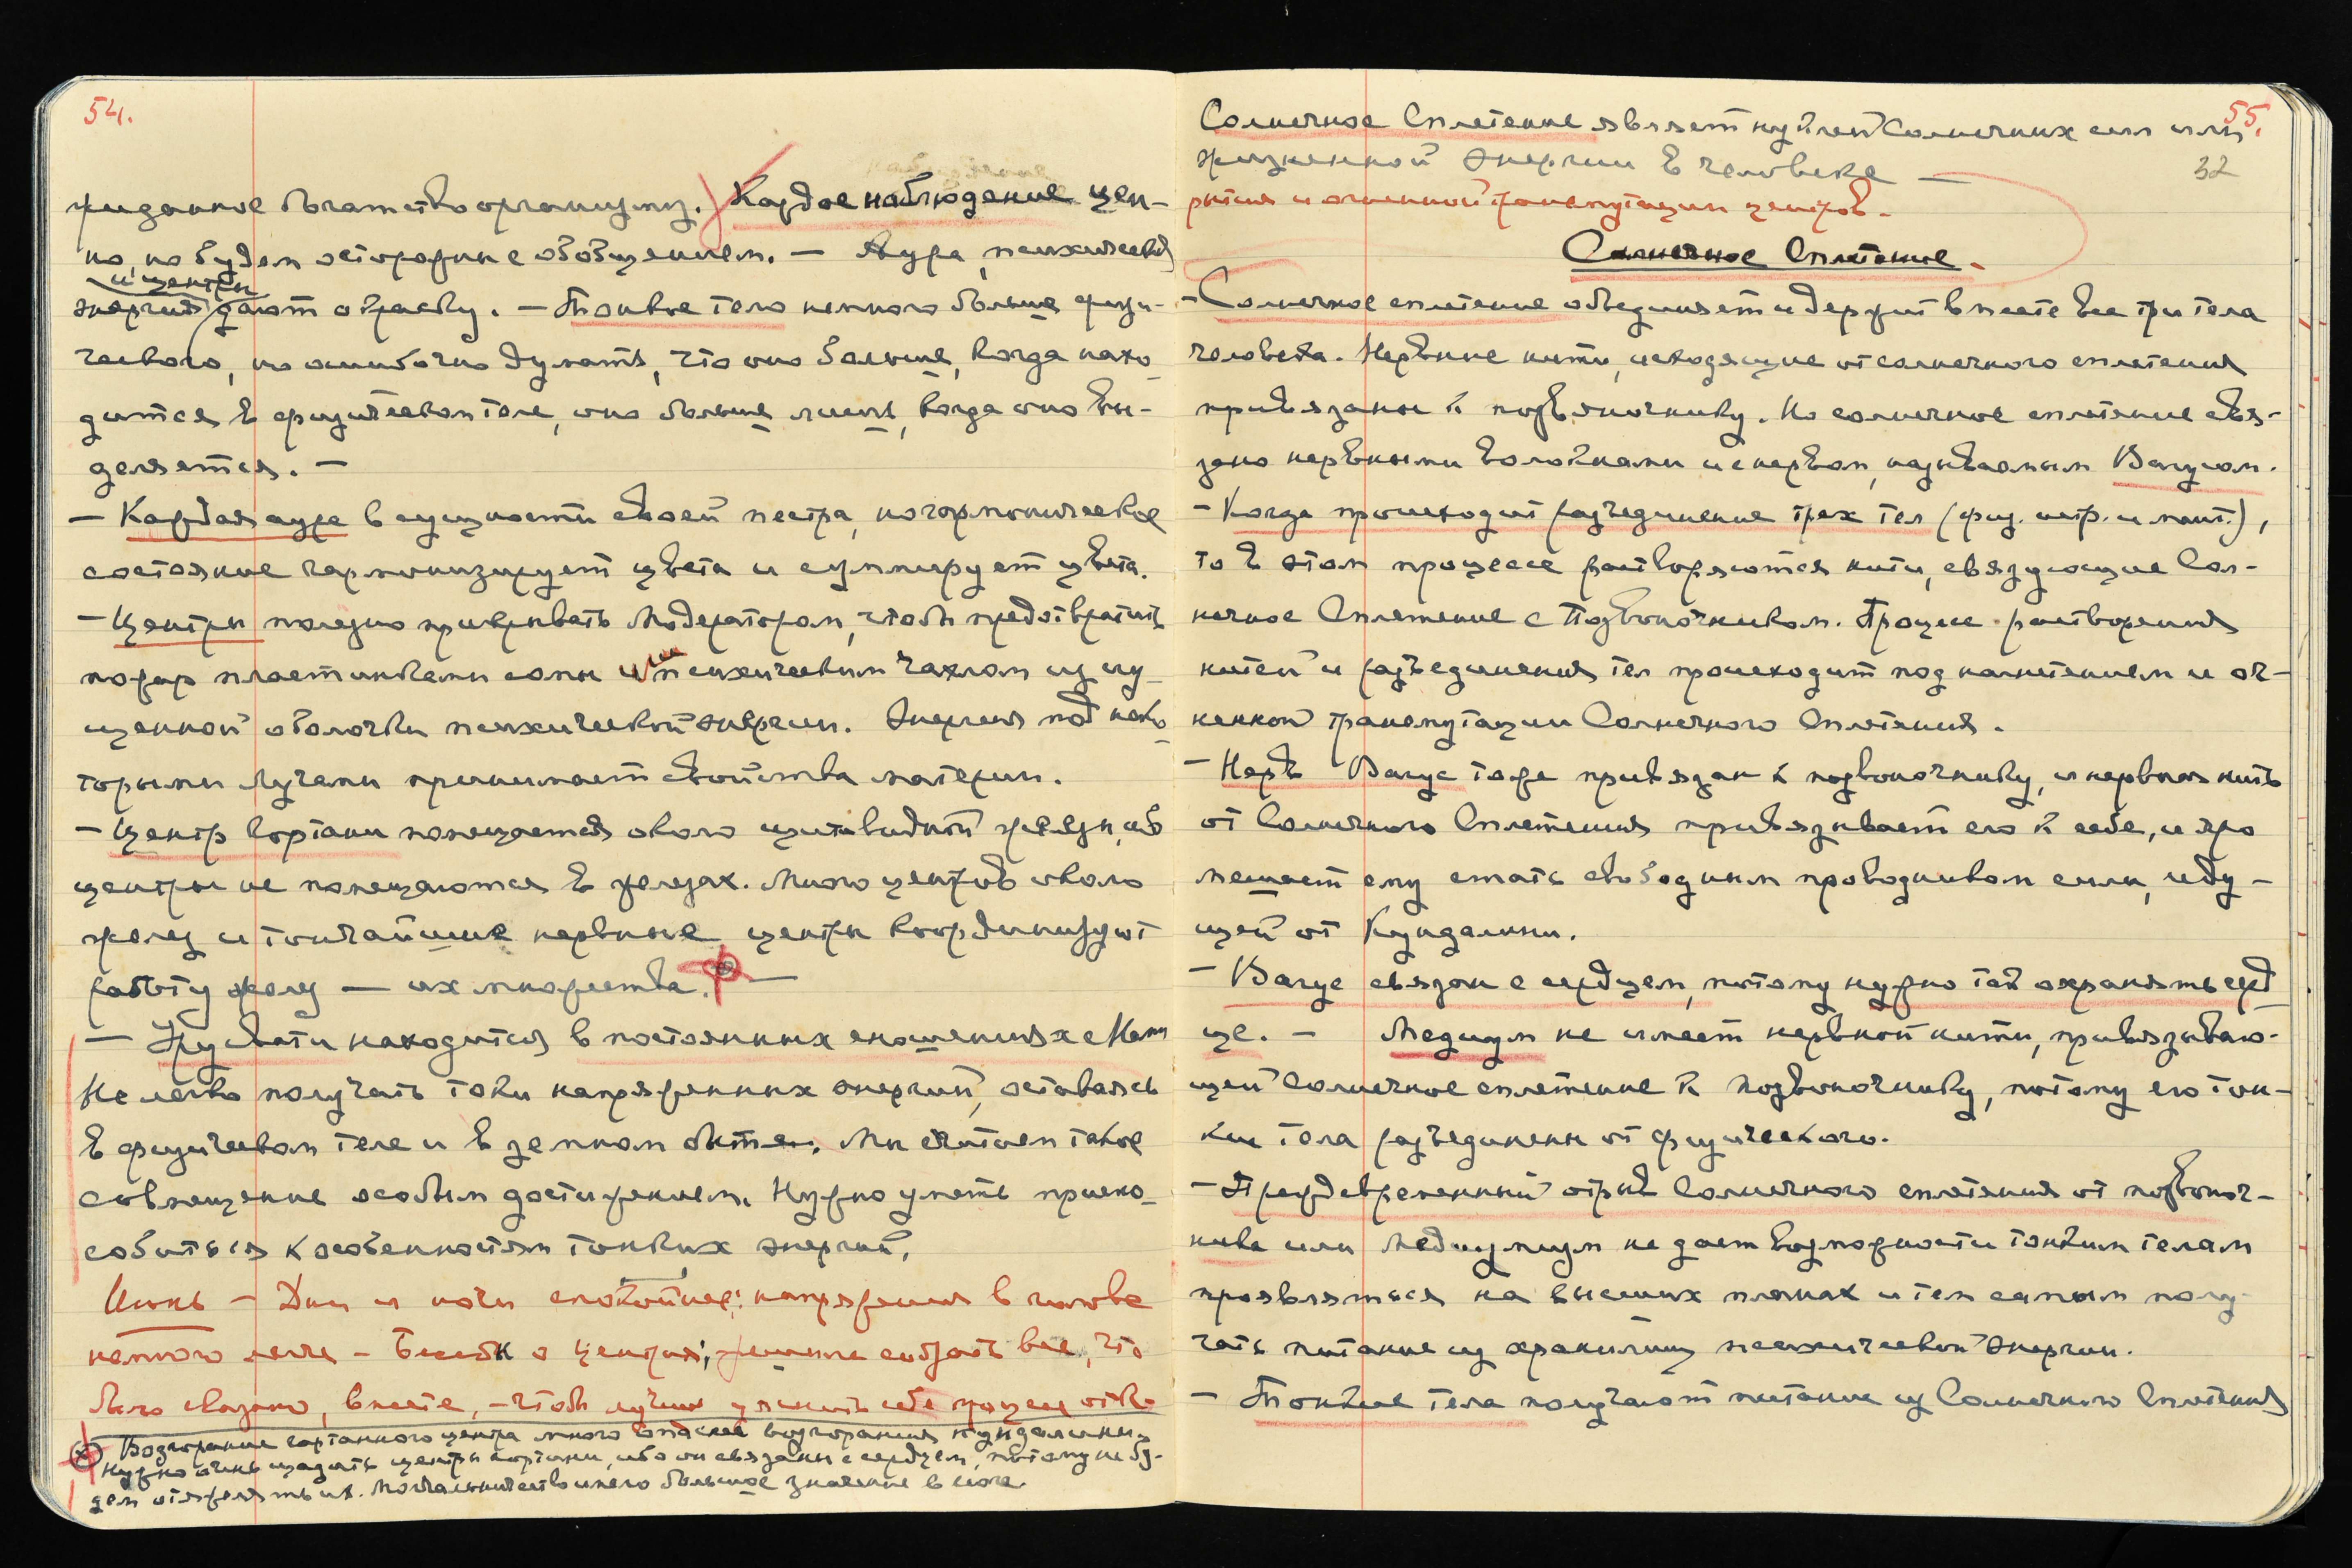 54.
жиданное богатство организму. Каждое наблюдение цен-
но, но будем осторожны с обобщением. — Аура, психическая
и центры
энергия дают окраску. — Тонкое тело немного больше физи-
ческого, но ошибочно думать, что оно больше, когда нахо-
дится в физическом теле, оно больше лишь, когда оно вы-
деляется. —
— Каждая аура в сущности своей пестра, но гармоническое
состояние гармонизирует цвета и суммирует цвета.
— Центры полезно прикрывать Модератором, чтобы предотвратить
пожар пластинками соды или психическим чахлом из сгу-
щенной оболочки психической энергии. Энергия под неко-
торыми лучами принимает свойства материи.
— Центр гортани помещается около щитовидной железы, ибо
центры не помещаются в железах. Много центров около
желез и тончайшие нервные центры координируют
работу желез — их множества. —
— Урусвати находится в постоянных сношениях с Нами
Не легко получать токи напряженных энергий, оставаясь
в физическом теле и в земном быте. Мы считаем такое
совмещение особым достижением. Нужно уметь приспо-
собиться к особенностям тонких энергий.
Июнь — Дни и ночи спокойнее; напряжения в голове
немного легче — Бесед о Центрах; решила собрать все, что
было сказано, вместе, — чтобы лучше уяснить себе процесс откр-
Возгорание гортанного центра много опаснее возгорания Кундалини,
нужно очень щадить центры гортани, ибо он связаны с сердцем, потому не бу-
дем отяжелять их. Молчальничество имело большое значение в йоге.
55.
Солнечное Сплетение являет нуклей Солнечных сил или
жизненной энергии в человеке —
32
рытия и огненной трансмутации центров.
Солнечное Сплетение.
— Солнечное сплетение объединяет и держит вместе все три тела
человека. Нервные нити, исходящие от солнечного сплетения
привязаны к позвоночнику. Но солнечное сплетение свя-
зано нервными волокнами и с нервом, называемым Вагусом.
— Когда происходит разъединение трех тел (физ. астр. и мент.),
то в этом процессе растворяются нити, связующие Сол-
нечное Сплетение с Позвоночником. Процесс растворения
нитей и разъединения тел происходит под нагнетанием и ог-
ненной трансмутации Солнечного Сплетения.
— Нерв Вагус тоже привязан к позвоночнику, и нервная нить
от Солнечного Сплетения привязывает его к себе, и яро
мешает ему стать свободным проводником силы, иду-
щей от Кундалини.
— Вагус связан с сердцем, потому нужно так охранять серд-
це. — Медиум не имеет нервной нити, привязываю-
щей Солнечное сплетение к позвоночнику, потому его тон-
кие тела разъединены от физического.
— Преждевременный отрыв Солнечного сплетения от позвоноч-
ника или медиумизм не дает возможности тонким телам
проявляться на высших планах и тем самым полу-
чать питание из хранилищ психической энергии.
— Тонкие тела получают питание из Солнечного Сплетения